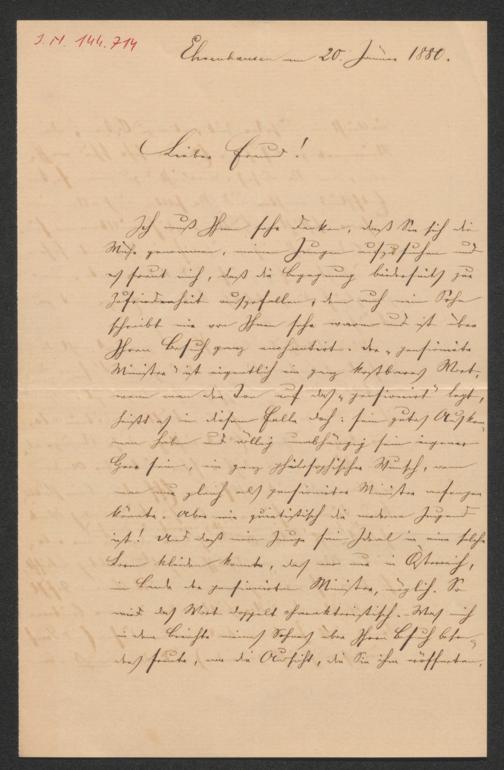 J.N. 144.714
Ehrenhausen am 20. Jänner 1880.
Lieber Freund!
Ich muß Ihnen sehr danken, daß Sie sich die
Mühe genommen, meinen Jungen aufzusuchen und
es freut mich, daß die Begegnung beiderseits zur
Zufriedenheit ausgefallen, denn auch mein Sohn
schreibt mir von Ihnen sehr warm und ist über
Ihren Besuch ganz enchantirt. Der „pensionirte
Minister" ist eigentlich ein ganz kostbares Wort,
wenn man den Ton auf das „pensionirt" legt,
heißt es in diesem Falle doch: sein gutes Auskom-
men haben und völlig unabhängig sein eigener
Herr sein, ein ganz philosophischer Wunsch, wenn
man nur gleich als pensionirter Minister anfangen
könnte. Aber wie quietistisch die moderne Jugend
ist! Und daß mein Junge sein Ideal in eine solche
Form kleiden konnte, das war nur in Österreich,
im Lande der pensionirten Minister, möglich. So
wird das Wort doppelt charakteristisch. Was mich
in dem Berichte meines Sohnes über Ihren Besuch beson-
ders freute, war die Aussicht, die Sie ihm eröffneten,